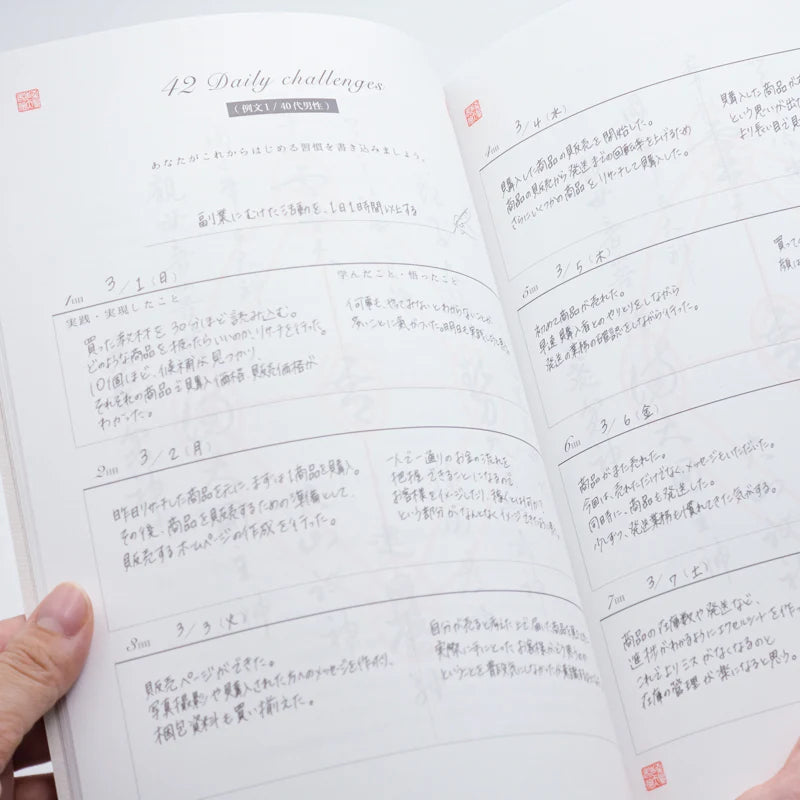 42 Daily challenges
(例文1/40代男性)
あなたがこれからはじめる習慣を書き込みましょう。
副業にむけた活動を、1日1時間以上する
1日目 3/1(日)
実践・実現したこと
買った教材を30分ほど読み込む。
どのような商品を扱ったらいいのかリサーチを行った。
10個ほど、候補が見つかり、
それぞれの商品の購入価格 販売価格が
わかった。
学んだこと・悟ったこと
何事も、やってみないとわからないことが
多いことに気がついた。明日も実践
2日目 3/2(月)
昨日リサーチした商品を元に、まずは1商品を購入。
その後、商品を販売するための準備として、
販売するホームページの作成を行った。
人で一通りのお金の流れを
把握できることになるので
お客様をイメージしたり、稼ぐとは何か?
という部分がなんとなくイメージできた
3日目 3/3(火)
販売ページができた。
写真撮影や購入された方へのメッセージを作成り、
梱包資料も買い揃えた。
自分が売ると考えた上で届いた商品を
実際に手にとったお客様がどう思うのか
ということを
4日目 3/4(水)
購入した商品の販売を開始した。
商品の販売から発送までの回転率を上げるため
さらにいくつかの商品をリサーチして購入した。
購入した商品が
という思いが出た
より長い目で見
5日目 3/5(木)
初めて商品が売れた。
早速購入者とのやりとりをしながら
発送の業務の確認をしながら行った。
買って
顔は
6日目 3/6(金)
商品がまた売れた。
今回は、売れただけでなく、メッセージもいただいた。
同時に、商品も発送した。
少しずつ、発送業務も慣れてきた気がする。
7日目 3/7(土)
商品の在庫数や発送など、
進捗がわかるようにエクセルシートを作っ
これでよりミスがなくなるのと
在庫の管理が楽になると思う。